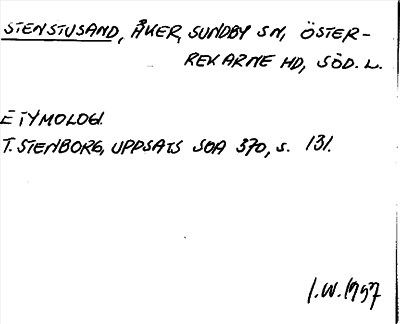 STENSTUSAND, ÅKER, SUNDBY SN, ÖSTER-
REKARNE HD, SÖD. L.
ETYMOLOGI.
T. STENBORG, UPPSATS SOA 370, S. 131.
I.W. 1997